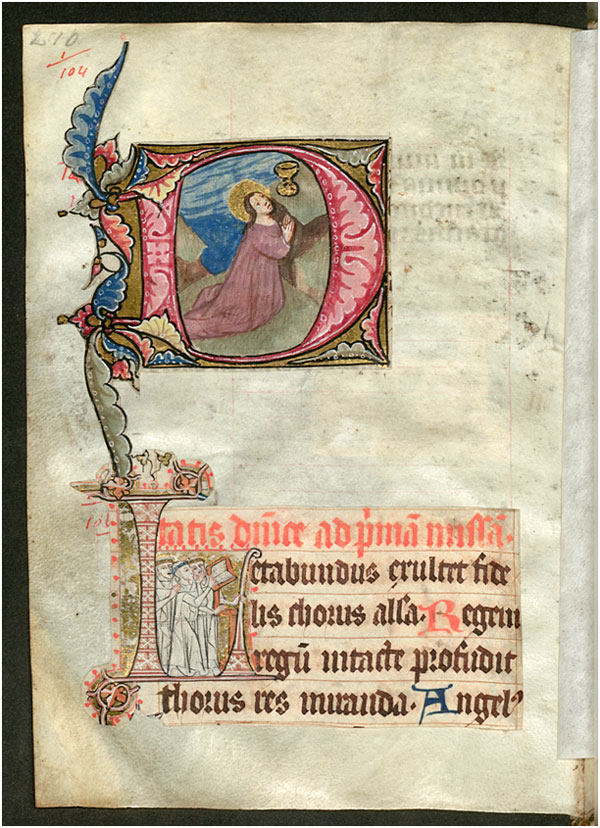 210
1
104
D
tatis dn̄ice ad p̄mā missā.
Letabundus exultet fide
lis chorus alla. Regem
regū intacte profudit
thorus res miranda. Angelꝰ